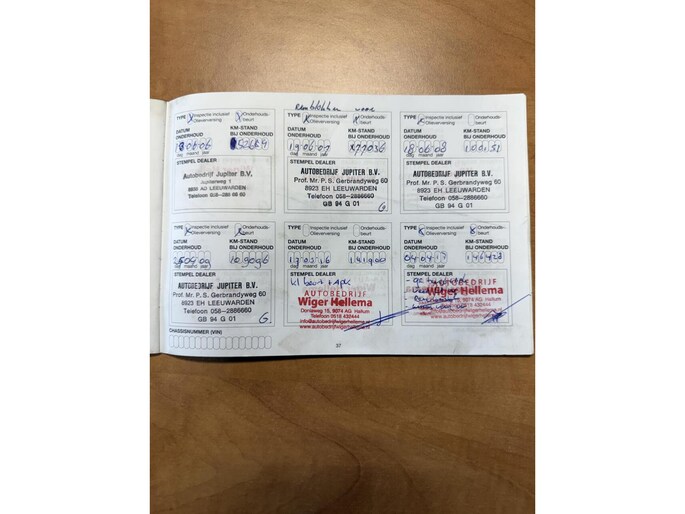 Remblokken voor
TYPE X Inspectie inclusief Olieverversing X Onderhouds-beurt
DATUM ONDERHOUD KM-STAND BIJ ONDERHOUD
dag maand jaar
STEMPEL DEALER
Autobedrijf Jupiter B.V.
8938 AD LEEUWARDEN
TYPE X Inspectie inclusief Olieverversing Onderhouds-beurt
DATUM ONDERHOUD KM-STAND BIJ ONDERHOUD
19 06 07 77036
dag maand jaar
STEMPEL DEALER
AUTOBEDRIJF JUPITER B.V.
Prof. Mr. P. S. Gerbrandyweg 60
8923 EH LEEUWARDEN
Telefoon 058-2866660
GB 94 G 01
G.
TYPE Inspectie inclusief Olieverversing Onderhouds-beurt
DATUM ONDERHOUD KM-STAND BIJ ONDERHOUD
18 06 08
dag maand jaar
STEMPEL DEALER
AUTOBEDRIJF JUPITER B.V.
Prof. Mr. P. S. Gerbrandyweg 60
8923 EH LEEUWARDEN
Telefoon 058-2866660
GB 94 G 01
TYPE Inspectie inclusief Olieverversing Onderhouds-beurt
DATUM ONDERHOUD KM-STAND BIJ ONDERHOUD
109096
dag maand jaar
STEMPEL DEALER
AUTOBEDRIJF JUPITER B.V.
Prof. Mr. P. S. Gerbrandyweg 60
8923 EH LEEUWARDEN
Telefoon 058-2866660
GB 94 G 01
G.
TYPE Inspectie inclusief Olieverversing Onderhouds-beurt
DATUM ONDERHOUD KM-STAND BIJ ONDERHOUD
17 03 16 141900
dag maand jaar
STEMPEL DEALER
kl beurt + apk
AUTOBEDRIJF
Wiger Hellema
Doniaweg 15, 9074 AG Hallum
Telefoon 0518 432444
info@autobedrijfwigerhellema.nl
www.autobedrijfwigerhellema.nl
TYPE Inspectie inclusief Olieverversing Onderhouds-beurt
DATUM ONDERHOUD KM-STAND BIJ ONDERHOUD
04 04 17 146423
dag maand jaar
STEMPEL DEALER
AUTOBEDRIJF
Wiger Hellema
9074 AG Hallum
CHASSISNUMMER (VIN)
37